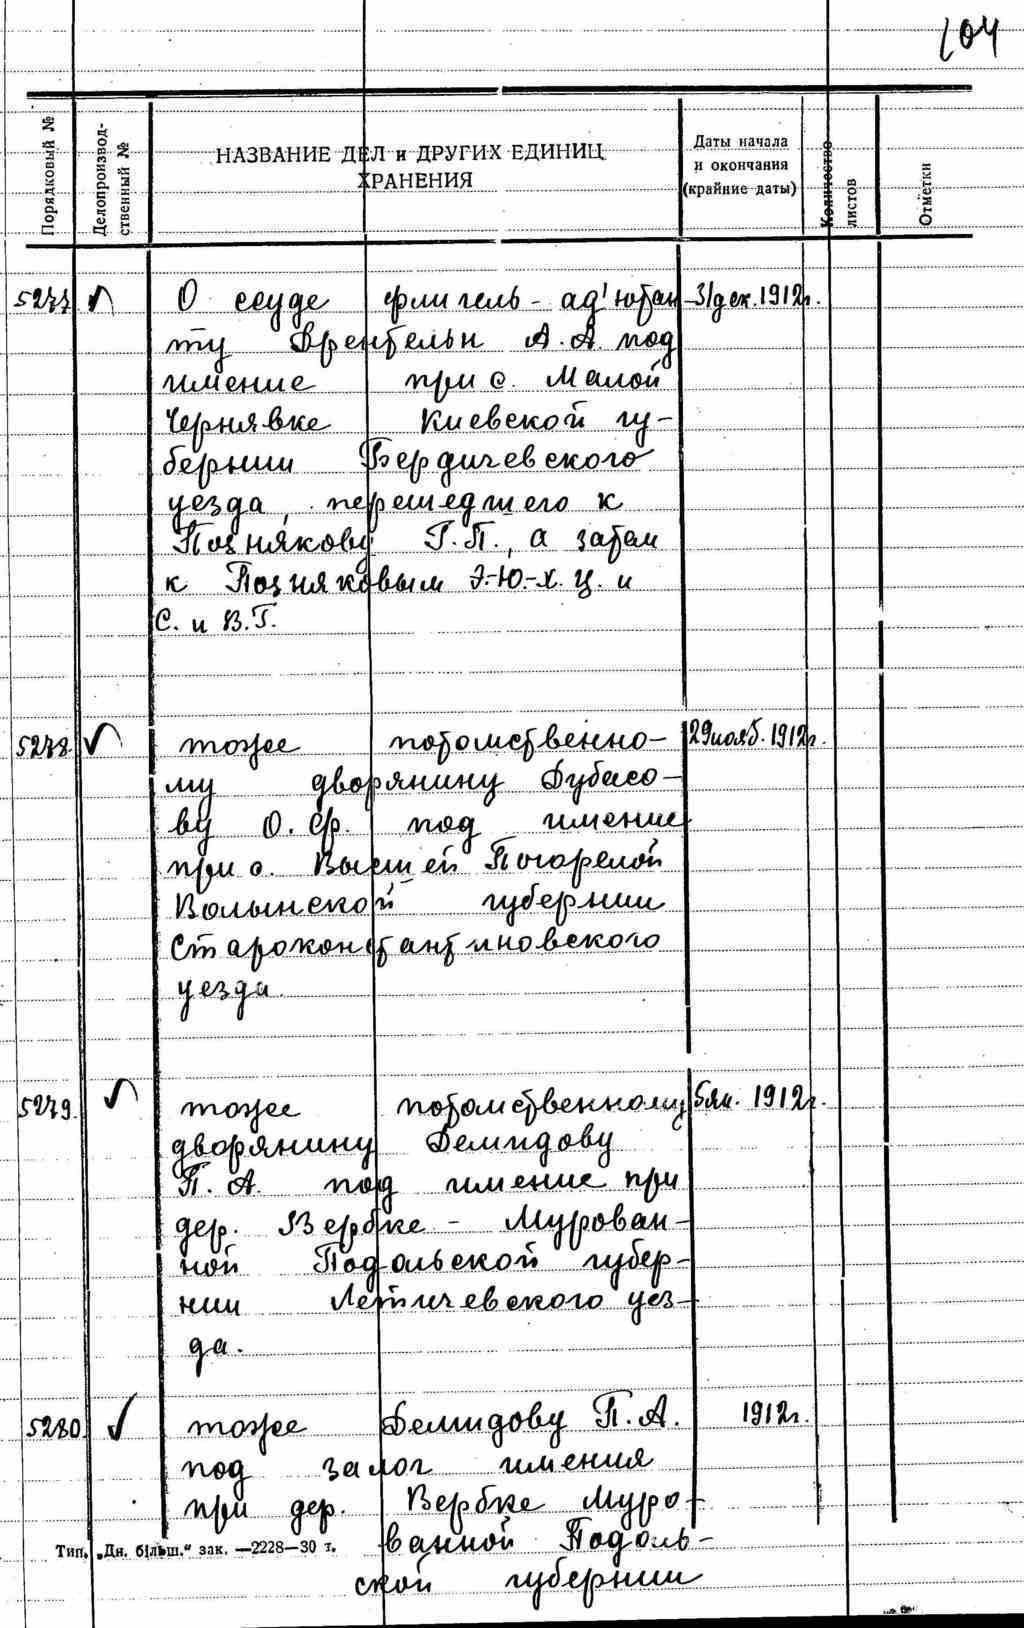 104
Порядковый №
Делопроизвод-
ственный №
НАЗВАНИЕ ДЕЛ и ДРУГИХ ЕДИНИЦ
ХРАНЕНИЯ
Даты начала
и окончания
(крайние даты)
Количество
листов
Отметки
5277. О ссуде флигель-ад'ютан- 31 дек. 1912г.
ту А.А. под
имение при с. Малой
Чернявке Киевской гу-
бернии Бердичевского
уезда, перешедшего к
Познякову Г.П., а затем
к Позняковым Э.-Ю.-Х. Ц. и
С. и В.Г.
5278. тоже потомственно- 29 нояб. 1912г.
му дворянину Дубасо-
ву О. Ф. под имение
при с. Высшей Погорелой
Волынской губернии
Староконстантиновского
уезда.
5279. тоже потомственному 5 ян. 1912г.
дворянину Демидову
П. А. под имение при
дер. Вербке - Мурован-
ной Подольской губер-
нии Летичевского уез-
да.
5280. тоже Демидову П. А. 1912г.
под залог имения
при дер. Вербке Муро-
ванной Подоль-
ской губернии
Тип. „Дн. більш." зак. —2228—30 т.